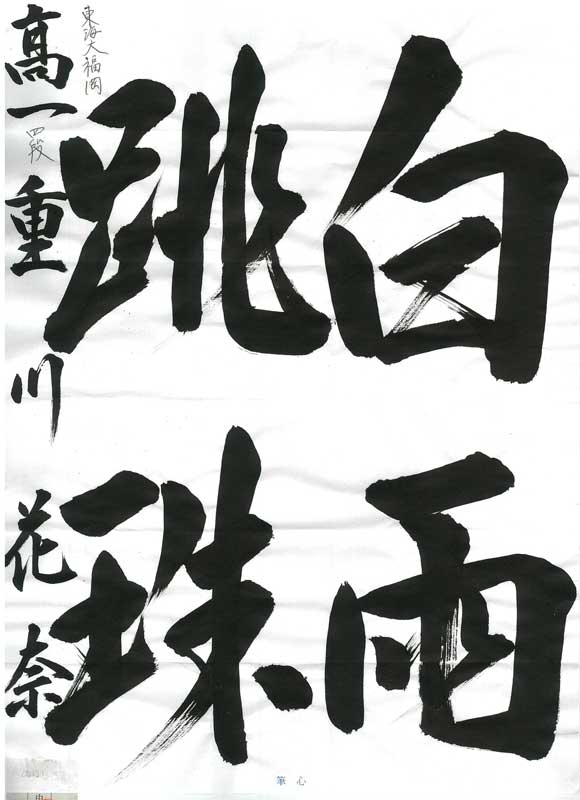 白雨
跳珠
東海大福岡
高一 四段 重川花奈
筆心